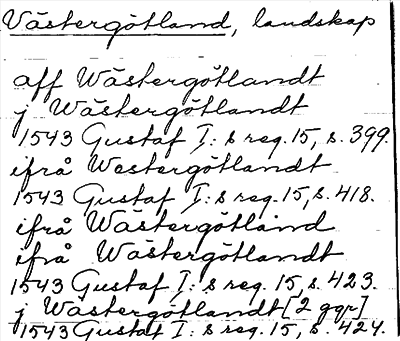 Västergötland, landskap
aff Wästergötlandt
j Wästergötlandt
1543 Gustaf I:s reg. 15, s. 399.
ifrå Westergötlandt
1543 Gustaf I:s reg. 15, s. 418.
ifrå Wästergötland
ifrå Wästergötlandt
1543 Gustaf I:s reg. 15, s. 423.
j Wästergötlandt [2 ggr]
1543 Gustaf I:s reg. 15, s. 424.